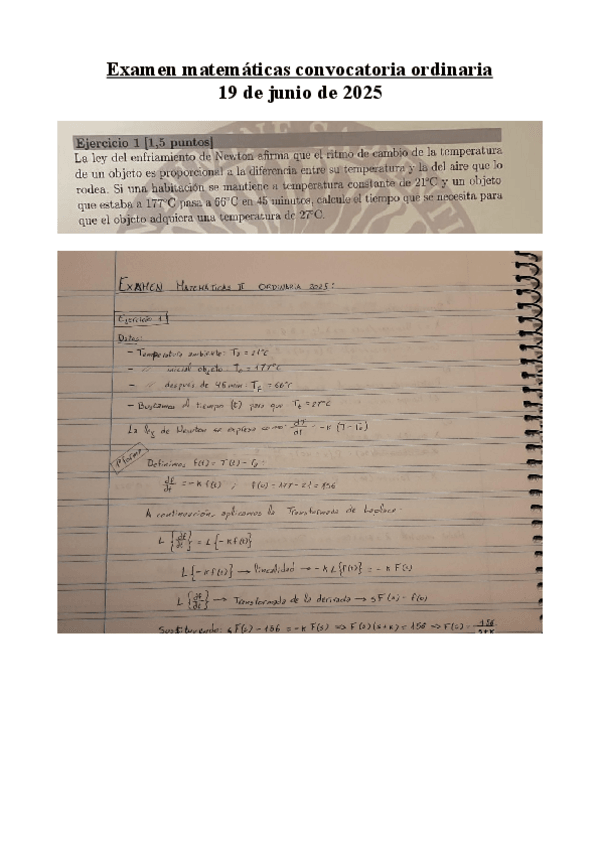 Examen matemáticas convocatoria ordinaria
19 de junio de 2025
Ejercicio 1 [1,5 puntos]
La ley del enfriamiento de Newton afirma que el ritmo de cambio de la temperatura
de un objeto es proporcional a la diferencia entre su temperatura y la del aire que lo
rodea. Si una habitación se mantiene a temperatura constante de 21°C y un objeto
que estaba a 177°C pasa a 66°C en 45 minutos, calcule el tiempo que se necesita para
que el objeto adquiera una temperatura de 27°C.
EXAMEN MATEMÁTICAS II ORDINARIA 2025:
Ejercicio 1
Datos:
- Temperatura ambiente: Ta = 21°C
- " inicial objeto: = 177°C
- " después de 45 min: Tt = 66°C
- Buscamos el tiempo (t) para que Tt = 27°C
La ley de Newton se expresa como: dT/dt = -K (T - Ta)
1ª forma
Definimos f(t) = T(t) - Ta:
df/dt = -K f(t) ; f(0) = 177 - 21 = 156
A continuación, aplicamos la Transformada de Laplace:
L {df/dt} = L {-K f(t)}
L {-K f(t)} → linealidad → -K L {f(t)} = -K F(s)
L {df/dt} → Transformada de la derivada → sF(s) - f(0)
Sustituyendo: sF(s) - 156 = -K F(s) ⇒ F(s)(s+K) = 156 ⇒ F(s) = 156/s+K